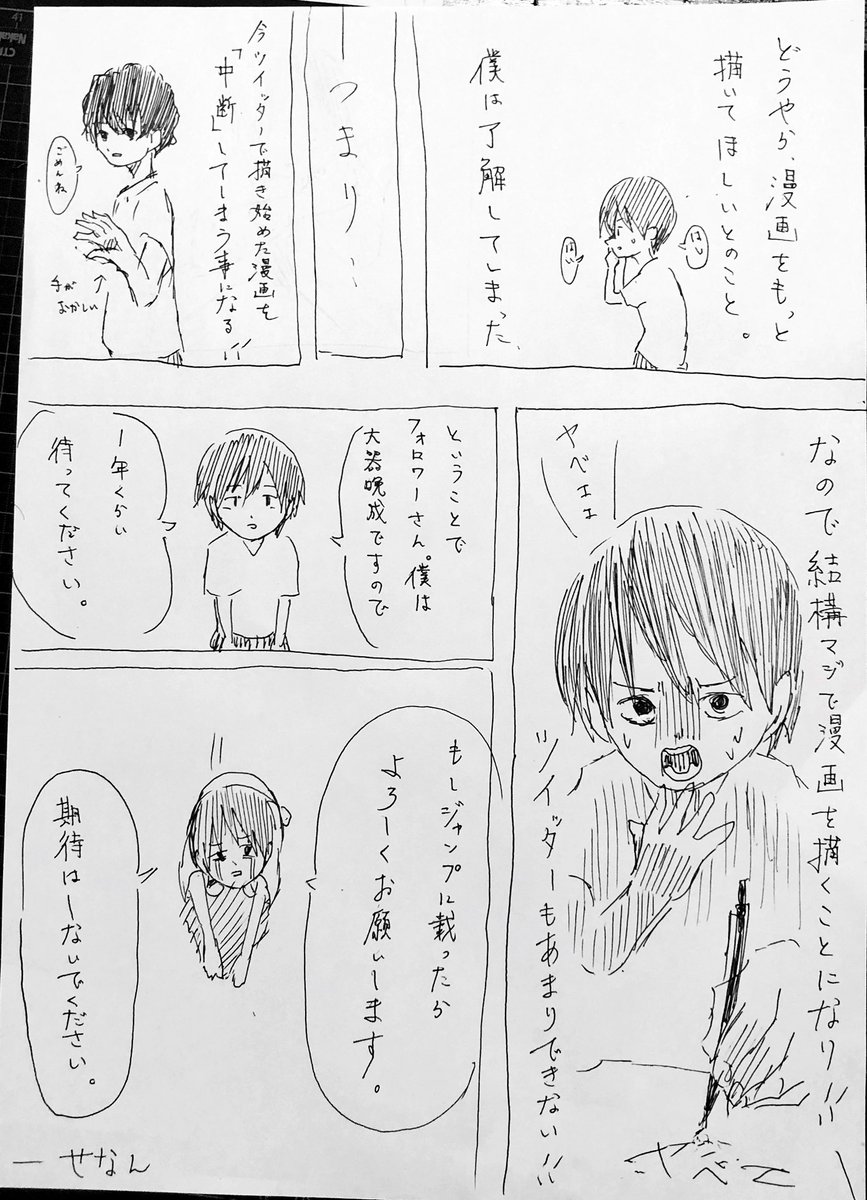 どうやら、漫画をもっと
描いてほしいとのこと。
僕は了解してしまった、
はい
はい
つまり…
今ツイッターで描き始めた漫画を
「中断」してしまう事になる!!
ごめんね
手が
おかしい
なので結構マジで漫画を描くことになり!!
ヤベェェ
ツイッターもあまりできない!!
やべて
ということで
フォロワーさん。僕は
大器晩成ですので
一年くらい
待ってください。
もしジャンプに載ったら
よろしくお願いします。
期待はしないでください。
ーせなん